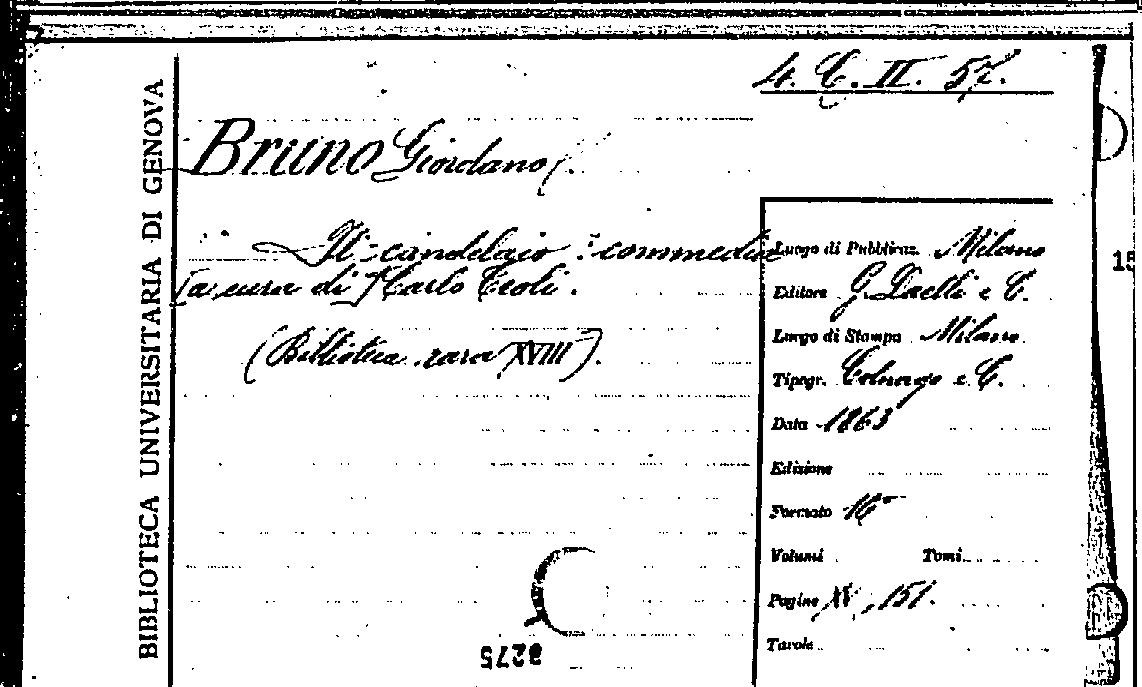 4. C. II. 57.
BIBLIOTECA UNIVERSITARIA DI GENOVA
Bruno Giordano
Il candelaio : commedia
[a cura di Carlo Teoli.
(Biblioteca rara XVIII).
Luogo di Pubblicaz. Milano
Editore G. Daelli e C.
Luogo di Stampa Milano.
Tipogr. Colnago e C.
Data 1863
Edizione
Formato 16º
Volumi Tomi
Pagine , 151.
Tavole
15
8275